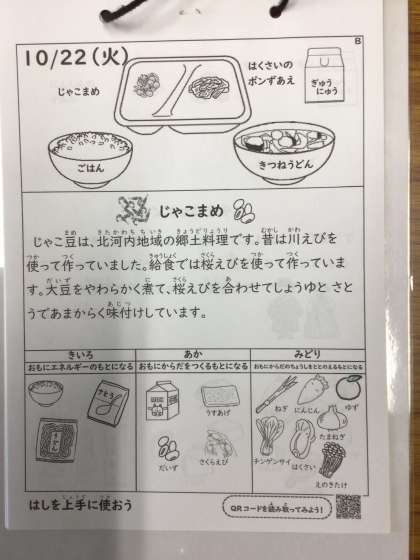 B
10/22(火)
はくさいの
ポンずあえ
じゃこまめ
ぎゅう
にゅう
ごはん
きつねうどん
じゃこまめ
じゃこ豆は、北河内地域の郷土料理です。昔は川えびを
使って作っていました。給食では桜えびを使って作っていま
す。大豆をやわらかく煮て、桜えびを合わせてしょうゆと さと
うであまからく味付けしています。
きいろ
おもにエネルギーのもとになる
さとう
うどん
あか
おもにからだをつくるもとになる
うすあげ
だいず
さくらえび
みどり
おもにからだのちょうしをととのえるもとになる
ねぎ
にんじん
ゆず
たまねぎ
チンゲンサイ
はくさい
えのきたけ
はしを上手に使おう
QRコードを読み取ってみよう!